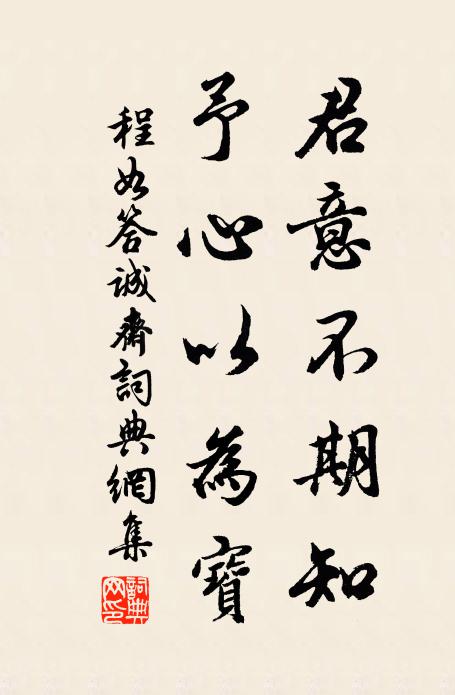 君意不期知
予心以為寶
程如答誠齋詞典網集
詞典網印